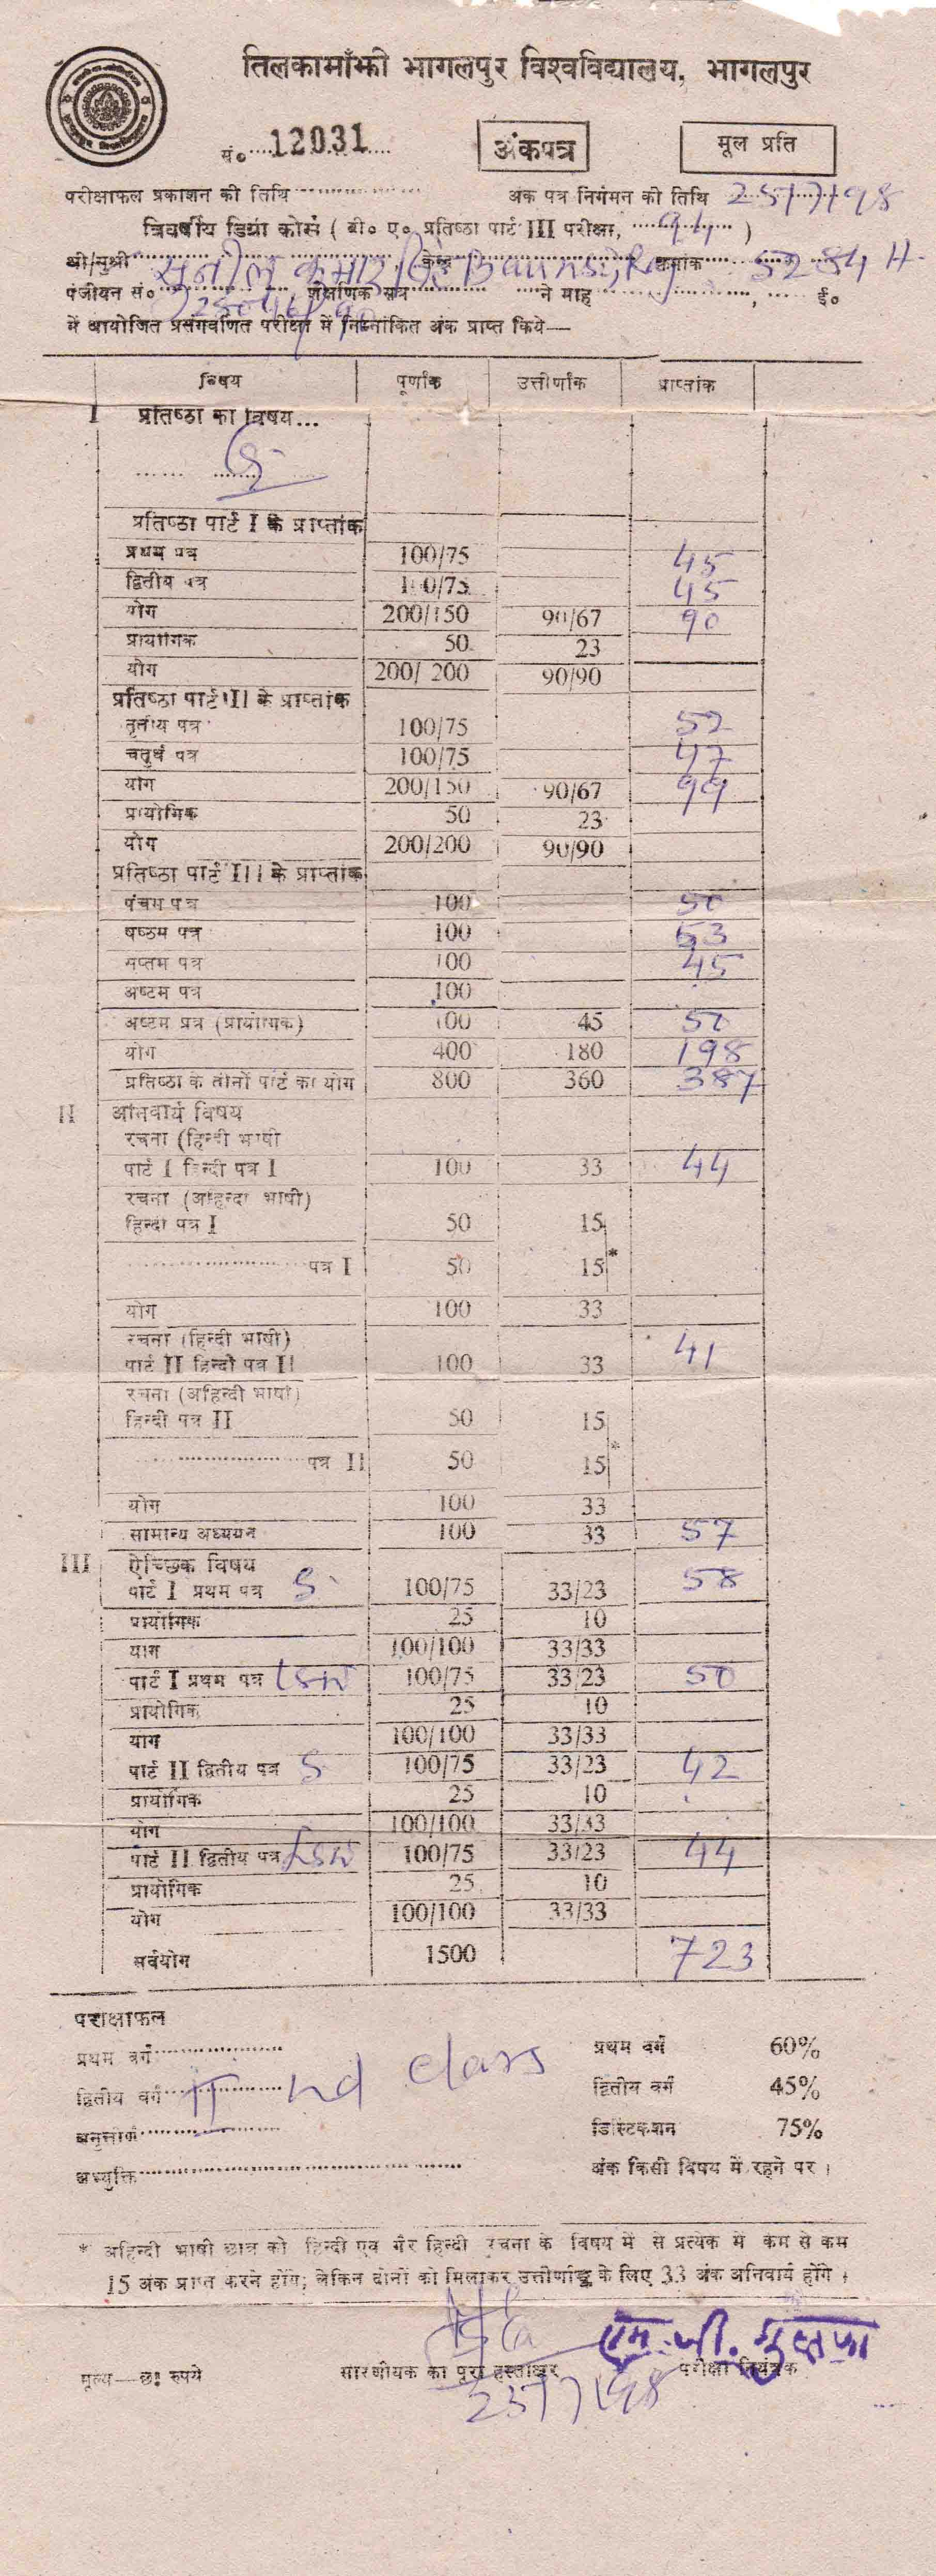 तिलकामाँझी भागलपुर विश्वविद्यालय, भागलपुर
सं० 12031 अंकपत्र मूल प्रति
परीक्षाफल प्रकाशन की तिथि अंक पत्र निर्गमन की तिथि 25/7/98
त्रिवर्षीय डिग्री कोर्स ( बी० ए० प्रतिष्ठा पार्ट III परीक्षा, )
श्री/सुश्री सुनील कुमार सिंह केन्द्र क्रमांक 5284 H
पंजीयन सं० शैक्षणिक सत्र ने माह , ई०
में आयोजित प्रसंगवर्णित परीक्षा में निम्नांकित अंक प्राप्त किये—
विषय पूर्णांक उत्तीर्णांक प्राप्तांक
I प्रतिष्ठा का विषय...
प्रतिष्ठा पार्ट I के प्राप्तांक
प्रथम पत्र 100/75 45
द्वितीय पत्र 100/75 45
योग 200/150 90/67 90
प्रायोगिक 50 23
योग 200/ 200 90/90
प्रतिष्ठा पार्ट II के प्राप्तांक
तृतीय पत्र 100/75 52
चतुर्थ पत्र 100/75 47
योग 200/150 90/67 99
प्रायोगिक 50 23
योग 200/200 90/90
प्रतिष्ठा पार्ट III के प्राप्तांक
पंचम पत्र 100 50
षष्ठम पत्र 100 53
सप्तम पत्र 100 45
अष्टम पत्र 100
अष्टम प्रत्र (प्रायोगिक) 100 45 50
योग 400 180 198
प्रतिष्ठा के तीनों पार्ट का योग 800 360 387
II अनिवार्य विषय
रचना (हिन्दी भाषी
पार्ट I हिन्दी पत्र I 100 33 44
रचना (अहिन्दी भाषी)
हिन्दी पत्र I 50 15
पत्र I 50 15 *
योग 100 33
रचना (हिन्दी भाषी)
पार्ट II हिन्दी पत्र II 100 33 41
रचना (अहिन्दी भाषी)
हिन्दी पत्र II 50 15
पत्र II 50 15 *
योग 100 33
सामान्य अध्ययन 100 33 57
III ऐच्छिक विषय
पार्ट I प्रथम पत्र S 100/75 33/23 58
प्रायोगिक 25 10
योग 100/100 33/33
पार्ट I प्रथम पत्र LSW 100/75 33/23 50
प्रायोगिक 25 10
योग 100/100 33/33
पार्ट II द्वितीय पत्र S 100/75 33/23 42
प्रायोगिक 25 10
योग 100/100 33/33
पार्ट II द्वितीय पत्र LSW 100/75 33/23 44
प्रायोगिक 25 10
योग 100/100 33/33
सर्वयोग 1500 723
परीक्षाफल
प्रथम वर्ग प्रथम वर्ग 60%
द्वितीय वर्ग II nd class द्वितीय वर्ग 45%
अनुत्तीर्ण डिस्टिंकशन 75%
अभ्युक्ति अंक किसी विषय में रहने पर।
* अहिन्दी भाषी छात्र को हिन्दी एवं गैर हिन्दी रचना के विषय में से प्रत्येक में कम से कम
15 अंक प्राप्त करने होंगे; लेकिन दोनों को मिलाकर उत्तीर्णाङ्क के लिए 33 अंक अनिवार्य होंगे।
एम. जी. मुस्तफा
मूल्य—छः रुपये सारणीयक का पूरा हस्ताक्षर परीक्षा नियंत्रक
25/7/98